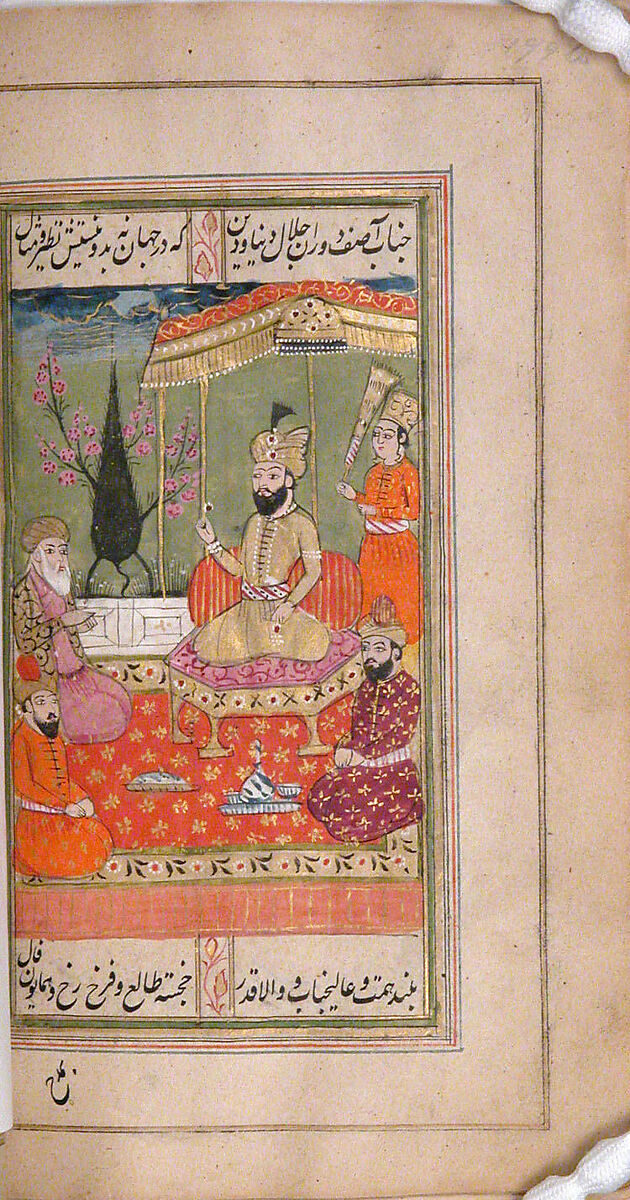 جناب آصف دوران جلال دنیا و دین
که در جهان نه بد و نیستش نظیر و مثال
بلند همت و عالیجناب و والا قدر
خجسته طالع و فرخ رخ و همایون فال